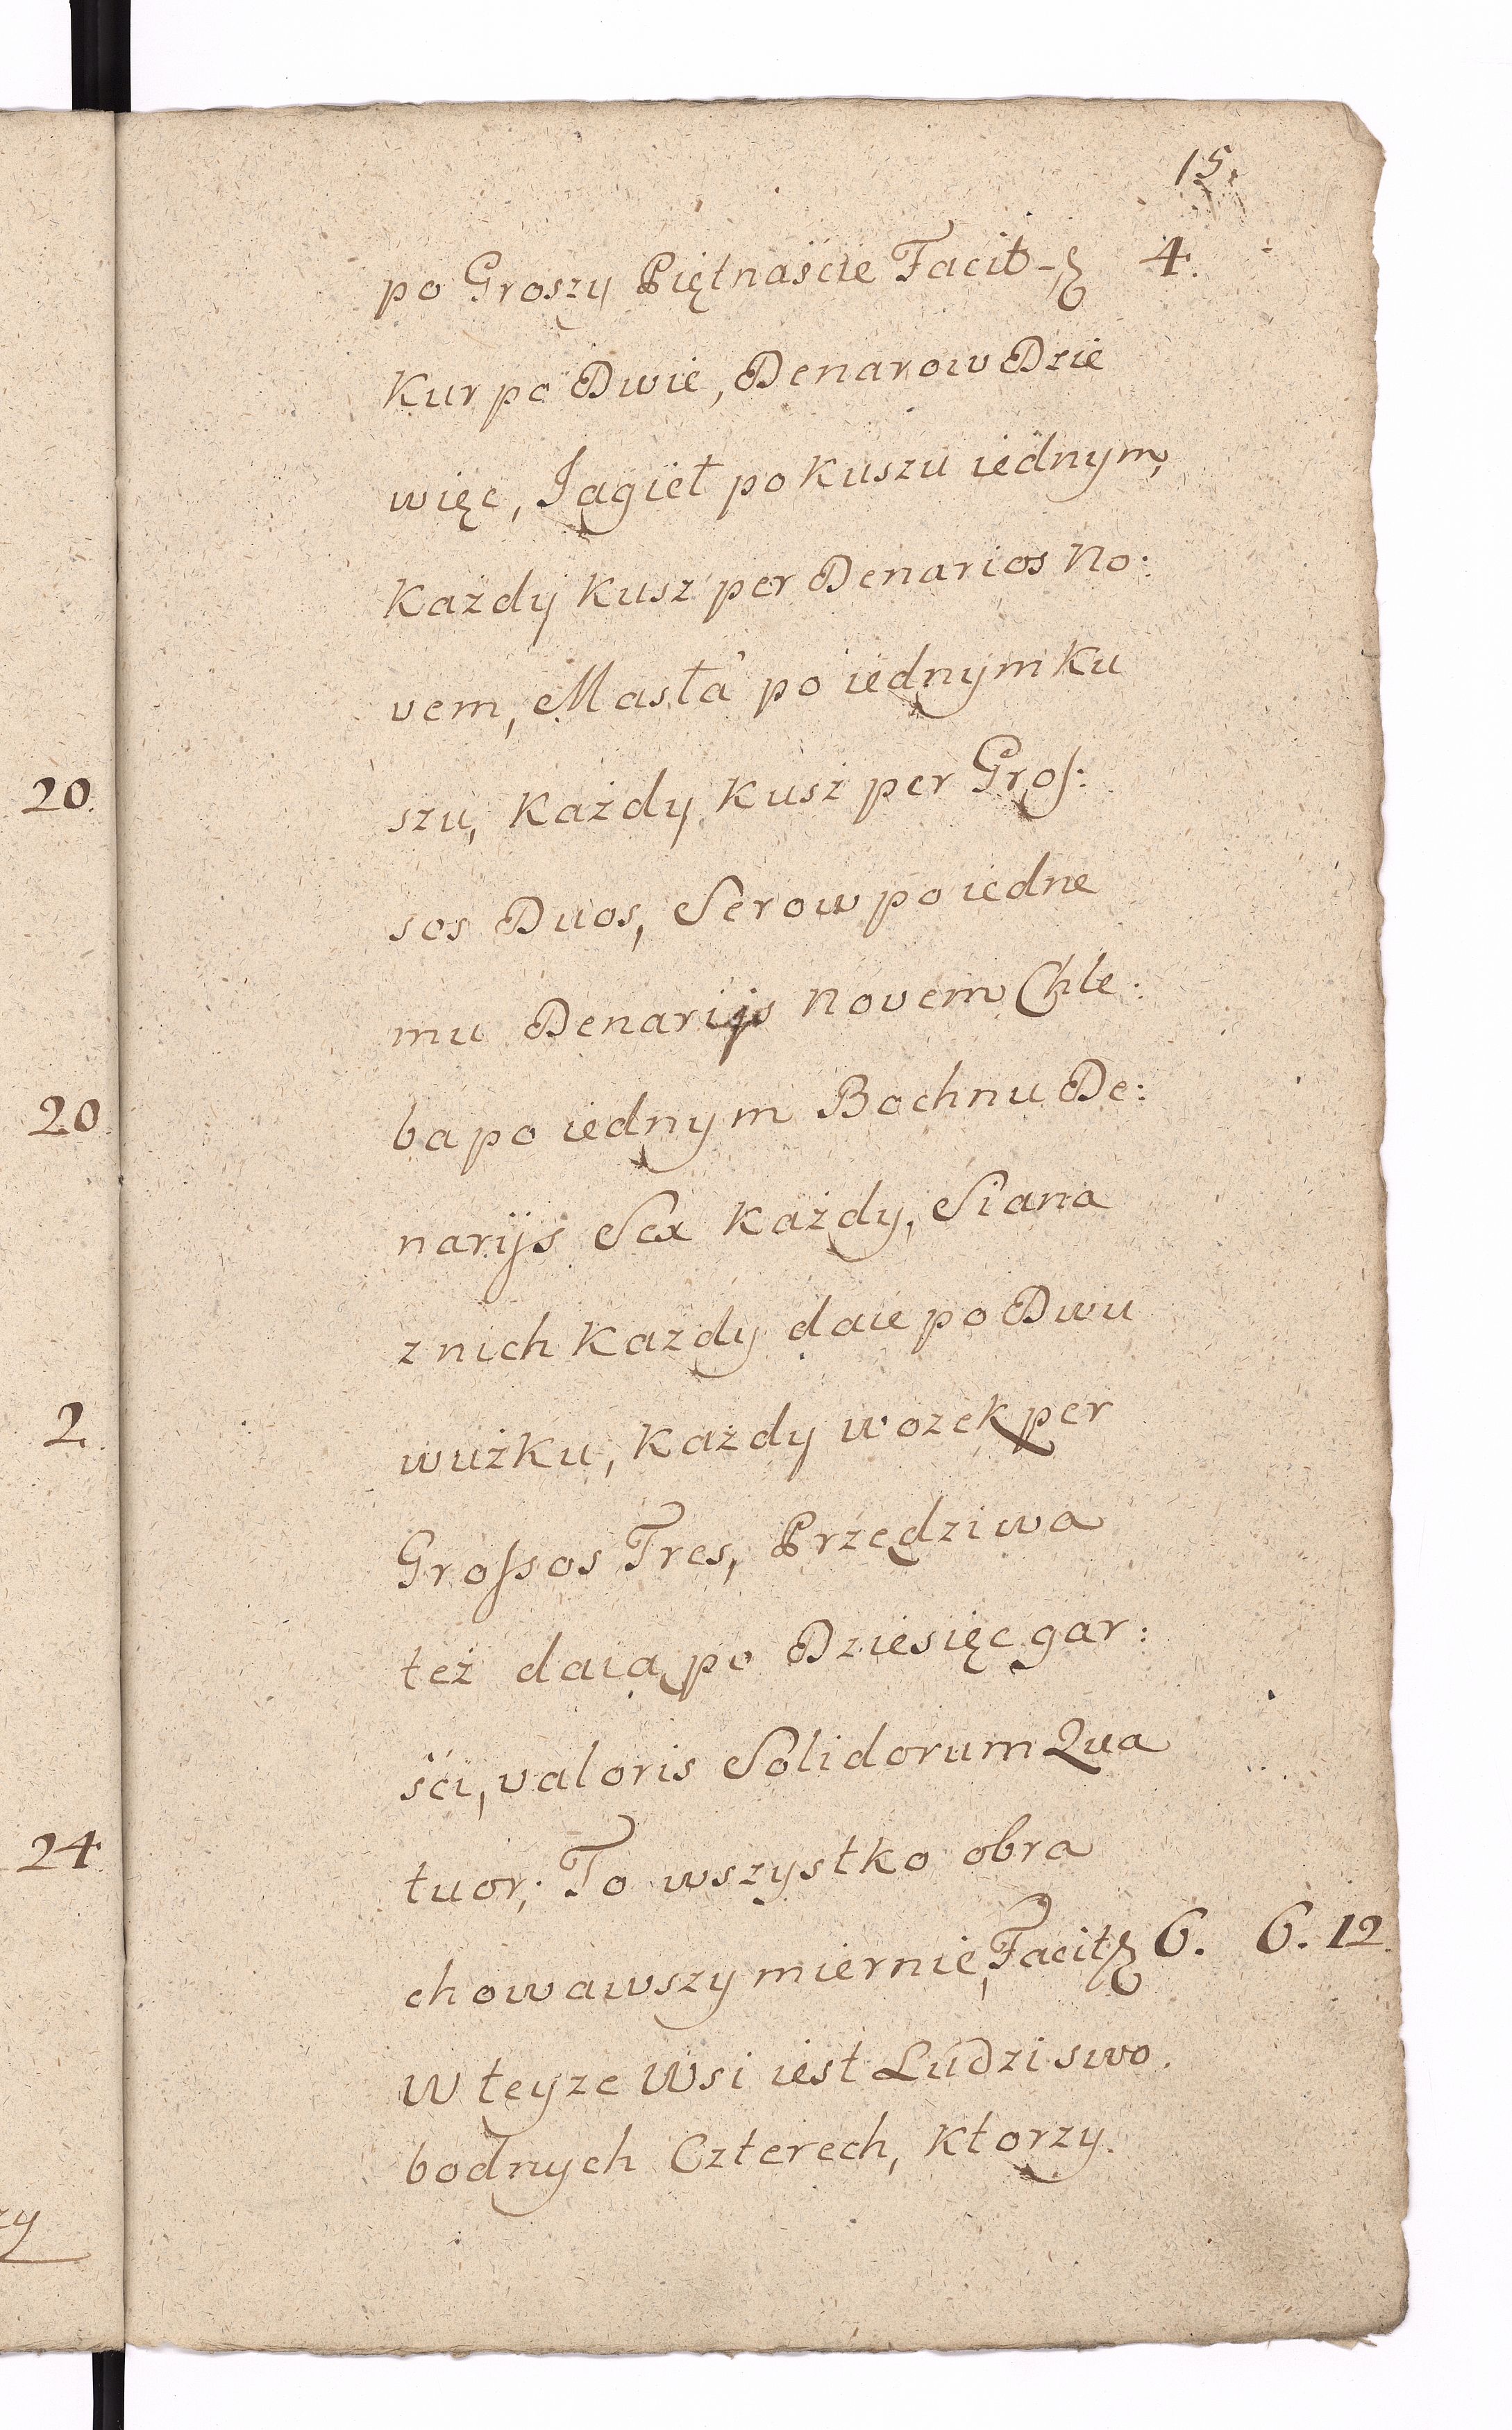 15.
po Groszy Piętnaście Facit - 4.
Kur po Dwie, Denarow Dzie
więc, Jagieł po Kuszu iednym,
Każdy Kusz per Denarios No:
vem, Masła po iednym Ku
szu, Każdy Kusz per Groſ:
sos Duos, Serow po iedne
mu Denarijs Novem Chle:
ba po iednym Bochnu De:
narijs Sex Każdy, Siana
z nich Każdy daie po Dwu
wużku, Każdy wozek per
Groſsos Tres, Przędziwa
też daią po Dziesięc gar:
ści, valoris Solidorum Qua
tuor; To wszystko obra
chowawszy miernie, Facit 6. 6. 12.
W teyze Wsi iest Ludzi swo.
bodnych Czterech, Ktorzy.
20.
20.
2.
24
zy